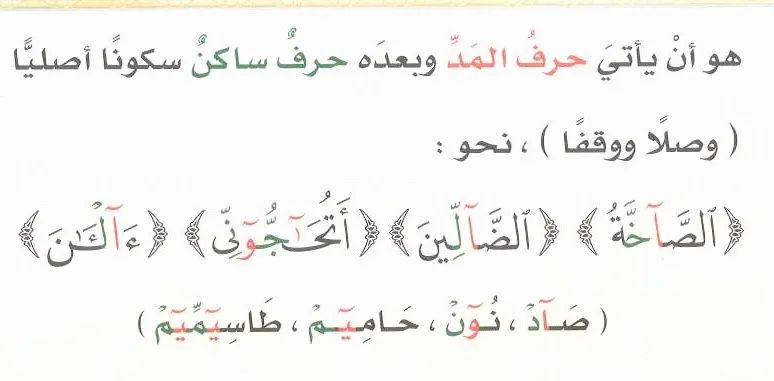 هو أنْ يأتيَ حرفُ المَدِّ وبعدَه حرفٌ ساكنٌ سكونًا أصليًّا
( وصلًا ووقفًا ) ، نحو :
﴿ٱلصَّآخَّةُ﴾ ﴿ٱلضَّآلِّينَ﴾ ﴿أَتُحَـٰٓجُّوٓنِّى﴾ ﴿ءَآلْـَٔـٰنَ﴾
( صَـآدْ ، نُـوٓنْ ، حَـامِيٓـمْ ، طَاسِيٓمِّيٓمْ )